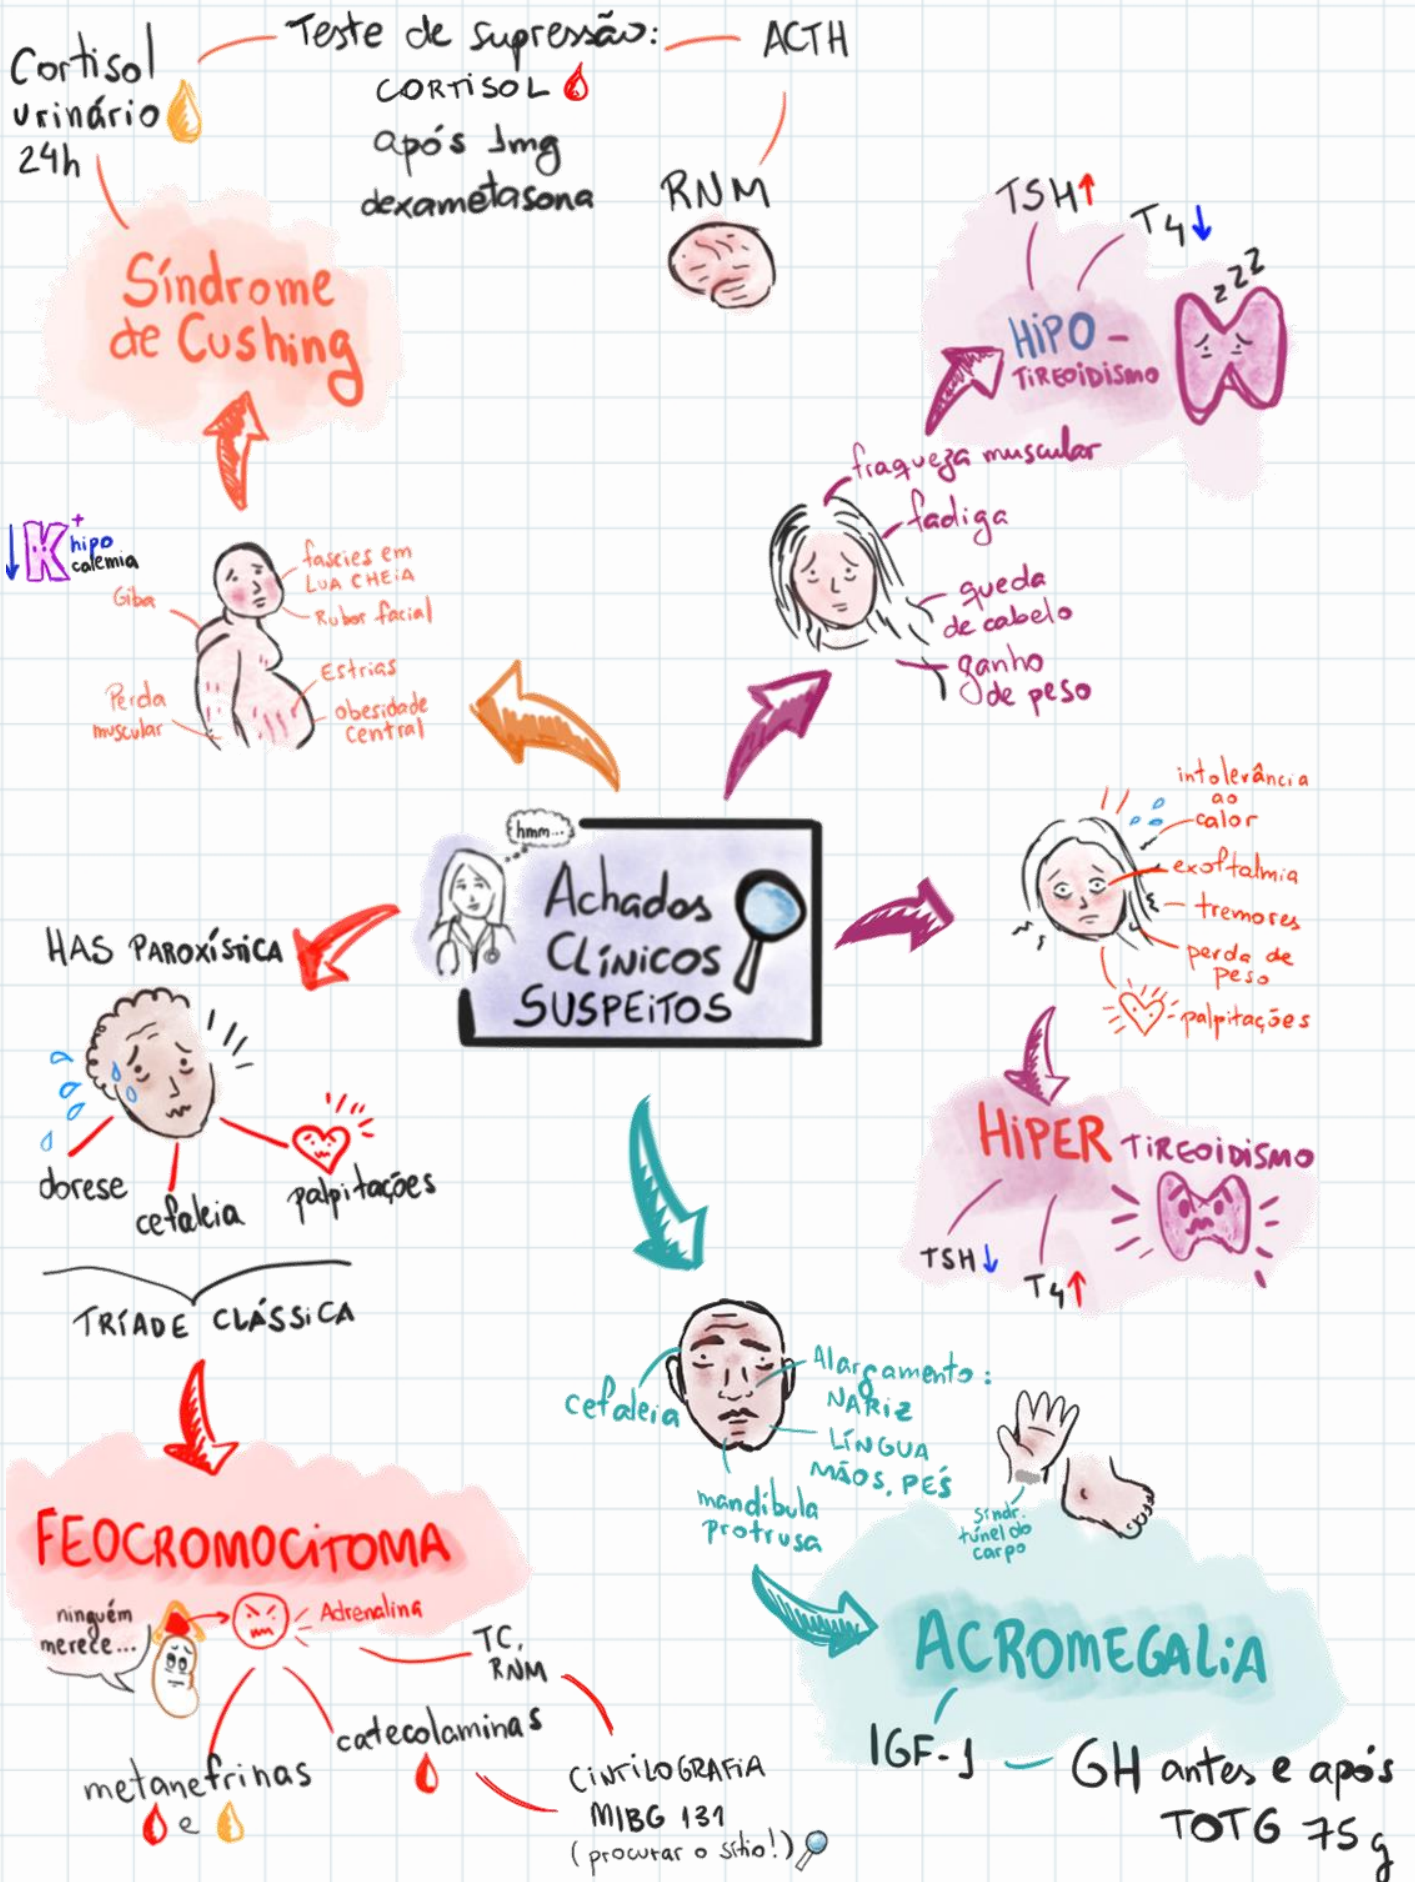 Cortisol
urinário
24h
Teste de supressão:
CORTISOL
após 1mg
dexametasona
ACTH
RNM
Síndrome
de Cushing
K+
hipo
calemia
Giba
fascies em
LUA CHEIA
Rubor facial
Estrias
obesidade
central
Perda
muscular
TSH↑
T4↓
zzz
HIPO-
TIREOIDISMO
fraqueza muscular
fadiga
queda
de cabelo
ganho
de peso
hmm...
Achados
CLÍNICOS
SUSPEITOS
intolerância
ao
calor
exoftalmia
tremores
perda de
peso
palpitações
HIPER TIREOIDISMO
TSH↓
T4↑
HAS PAROXÍSTICA
dorese
cefaleia
palpitações
TRÍADE CLÁSSICA
FEOCROMOCITOMA
ninguém
merece...
Adrenalina
TC,
RNM
catecolaminas
metanefrinas
e
CINTILOGRAFIA
MIBG 131
(procurar o sítio!)
cefaleia
Alargamento:
NARIZ
LÍNGUA
MÃOS, PÉS
mandíbula
protrusa
síndr.
túnel do
carpo
ACROMEGALIA
IGF-1
GH antes e após
TOTG 75g